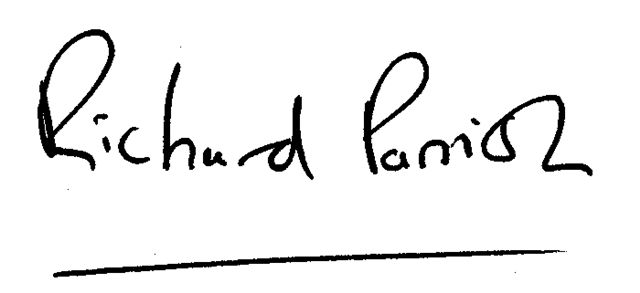 Richard Parrish